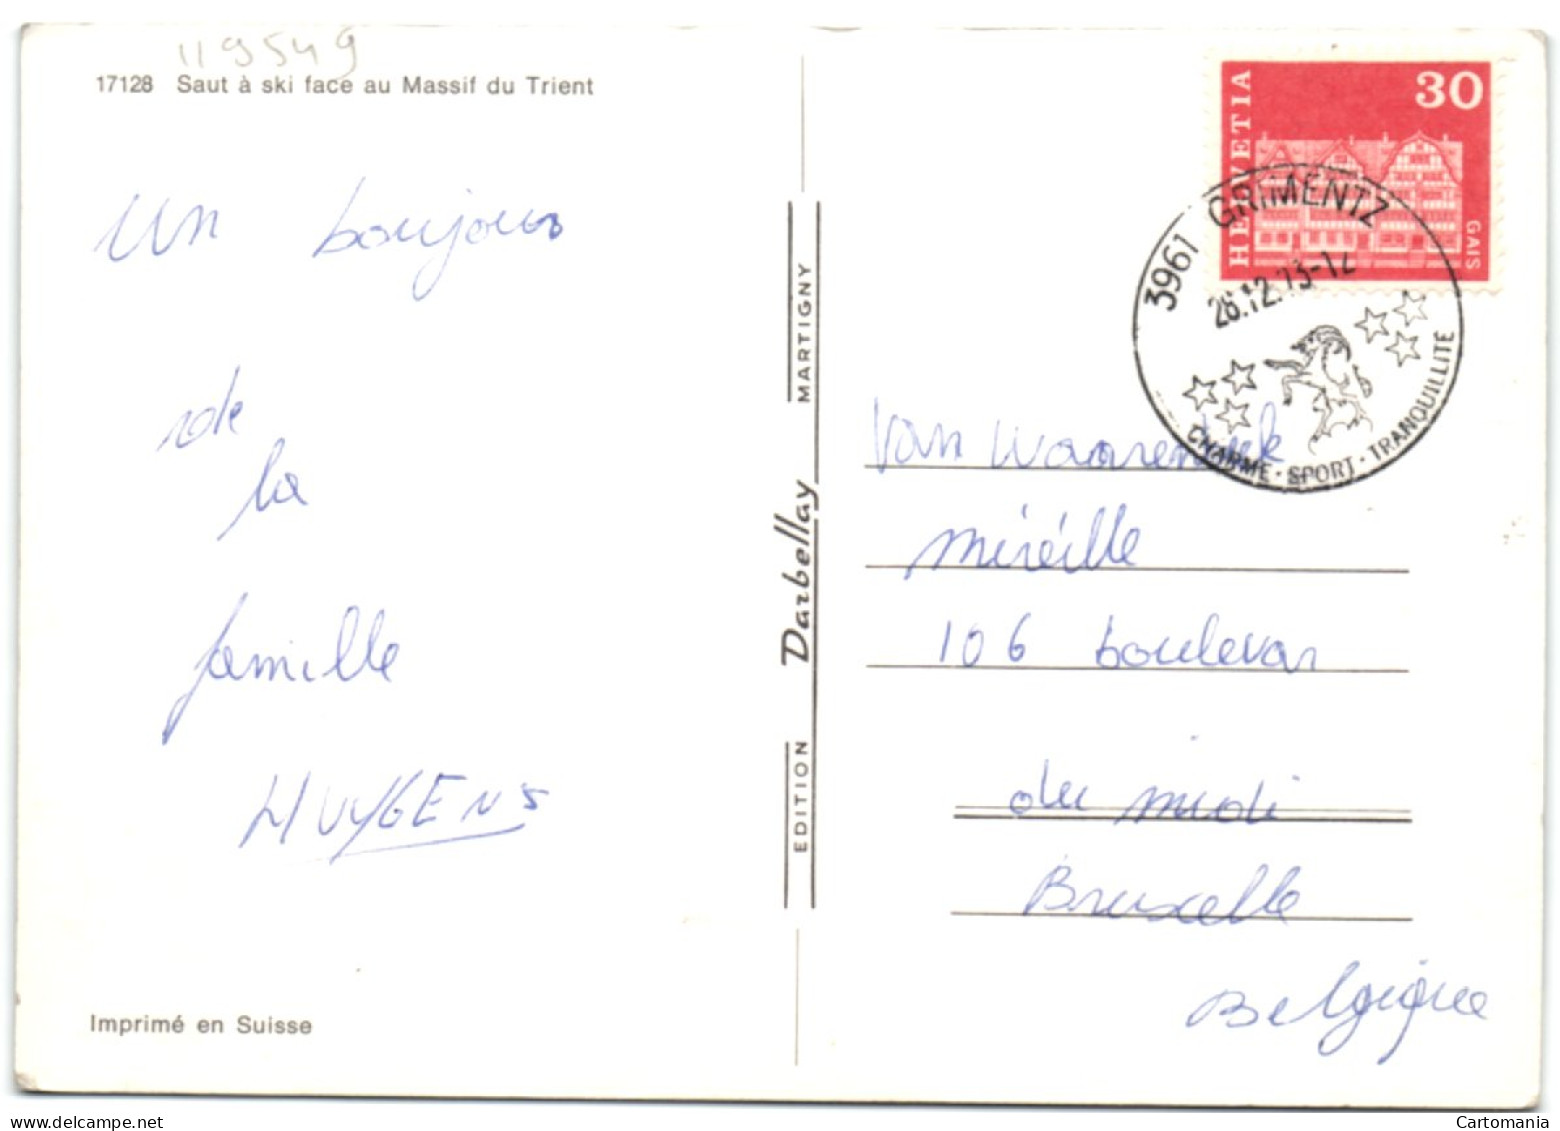 119549
17128 Saut à ski face au Massif du Trient
Un bonjour
de
la
famille
HUYGENS
Imprimé en Suisse
EDITION Darbellay MARTIGNY
HELVETIA
30
GAIS
3961 GRIMENTZ
26.12.73-12
CHARME · SPORT · TRANQUILLITE
Van
mireille
106 boulevar
du midi
Bruxelle
Belgique
Cartomania